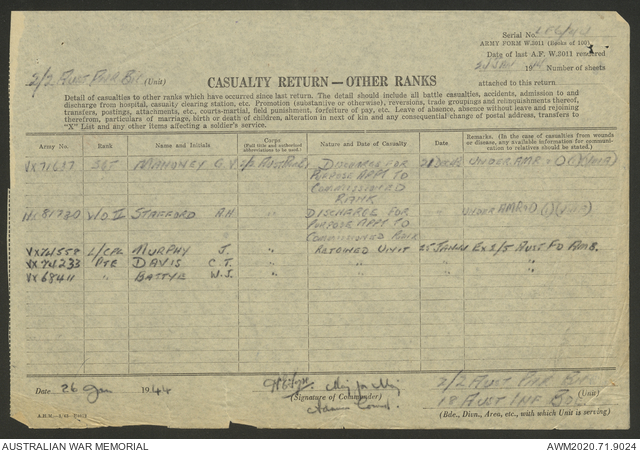 Serial No. LF6/44
ARMY FORM W.3011 (Ranks of 100)
Date of last A.F. W.3011 rendered
2/2 Aust Pnr Bn. (Unit)
21 Jan 1944 Number of sheets
CASUALTY RETURN—OTHER RANKS
attached to this return
Detail of casualties to other ranks which have occurred since last return. The detail should include all battle casualties, accidents, admission to and
discharge from hospital, casualty clearing station, etc. Promotion (substantive or otherwise), reversions, trade groupings and relinquishments thereof,
transfers, postings, attachments, etc., courts-martial, field punishment, forfeiture of pay, etc. Leave of absence, absence without leave and rejoining
therefrom, particulars of marriage, birth or death of children, alteration in next of kin and any consequential change of postal address, transfers to
"X" List and any other items affecting a soldier's service.
Army No. Rank Name and Initials Corps Nature and Date of Casualty Date Remarks. (In the case of casualties from wounds
(Full title and authorised abbreviations to be used.) or disease, any available information for communication to relatives should be stated.)
VX71637 SGT MAHONEY G.V. 2/2 Aust Pnr Bn DISCHARGE FOR 21 Dec UNDER AMR
PURPOSE APPT TO
COMMISSIONED
RANK
W/O II STAFFORD R.H. " DISCHARGE FOR UNDER AMR
PURPOSE APPT TO
COMMISSIONED RANK
L/CPL MURPHY J. " REJOINED UNIT 25 JAN 44 EX 2/5 AUST FD AMB.
VX74233 PTE DAVIS C.T. " " " "
VX6841 " BATTYE W.J. " " " "
Date 26 Jan 1944
(Signature of Commander)
2/2 AUST PNR BN. (Unit)
18 AUST INF BDE
(Bde., Divn., Area, etc., with which Unit is serving)
AUSTRALIAN WAR MEMORIAL
AWM2020.71.9024